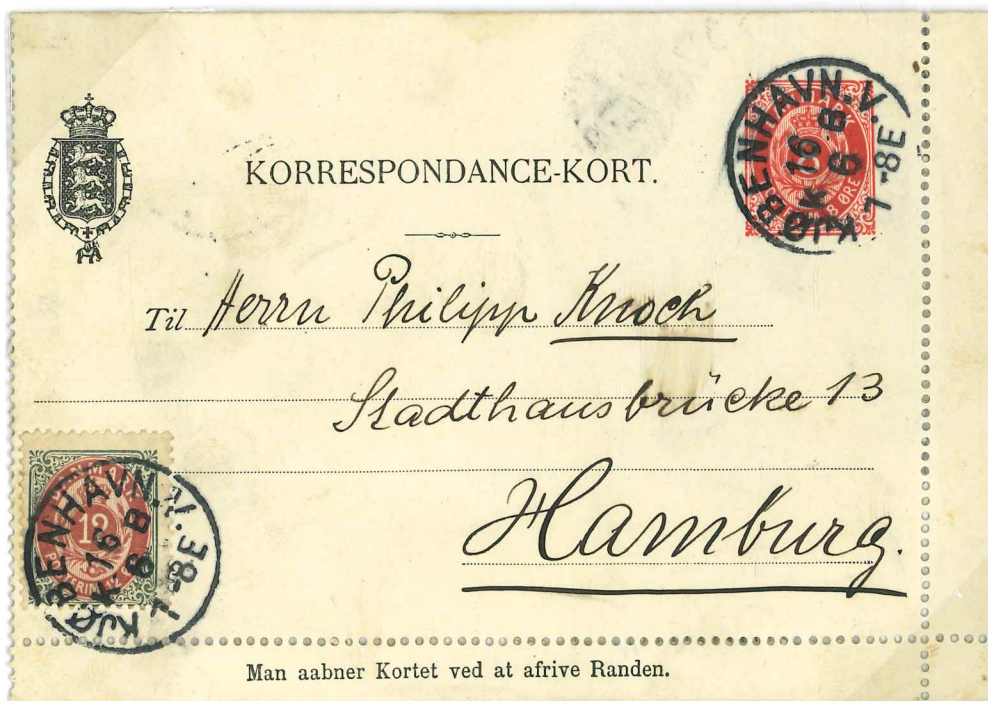 KORRESPONDANCE-KORT.
8
8 ØRE
KJØBENHAVN.V.
16 8
7-8E
Til Herrn Philipp Knoch
Stadthausbrücke 13
Hamburg.
12
KJØBENHAVN.V.
16 8
7-8E
Man aabner Kortet ved at afrive Randen.